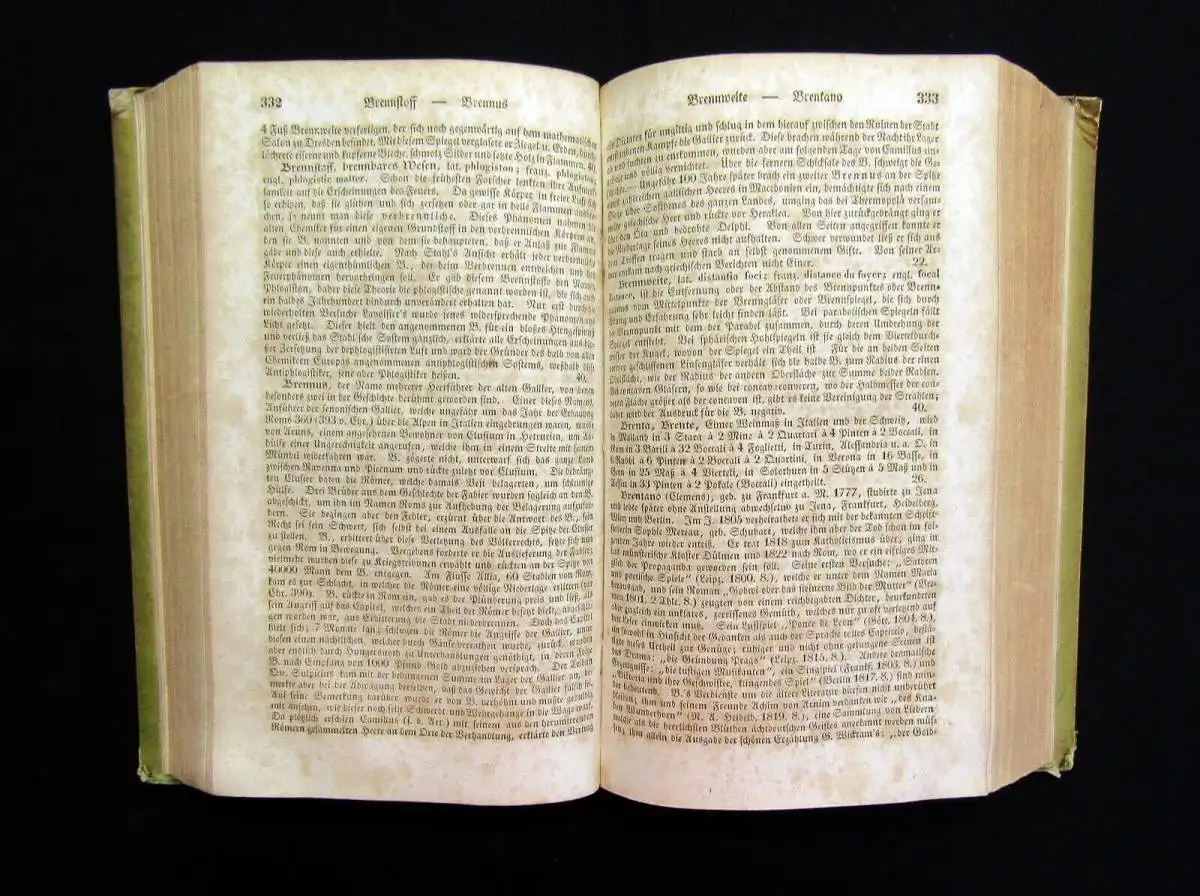 332 Brennstoff — Brennus
4 Fuß Brennweite verfertigen, der sich noch gegenwärtig auf dem mathematischen
Salon zu Dresden befindet. Mit diesem Spiegel verglasete er Ziegel u. Erden, durch-
löcherte eiserne und kupferne Bleche, schmolz Silber und setzte Holz in Flammen. 40.
Brennstoff, brennbares Wesen, lat. phlogiston; franz. phlogistion;
engl. phlogistic matter. Schon die frühesten Forscher lenkten ihre Aufmerk-
samkeit auf die Erscheinungen des Feuers. Da gewisse Körper in freier Luft sich
so erhitzen, daß sie glühen und sich zersetzen oder gar in helle Flammen ausbre-
chen, so nennt man diese verbrennliche. Dieses Phänomen nahmen die
alten Chemiker für einen eigenen Grundstoff in den verbrennlichen Körpern an,
den sie B. nannten und von dem sie behaupteten, daß er Anlaß zur Flamme
gäbe und diese auch erhielte. Nach Stahl's Ansicht erhält jeder verbrennliche
Körper einen eigenthümlichen B., der beim Verbrennen entweichen und das
Feuerphänomen hervorbringen soll. Er gab diesem Brennstoffe den Namen
Phlogiston, daher diese Theorie die phlogistische genannt worden ist, die sich auch
ein halbes Jahrhundert hindurch unverändert erhalten hat. Nur erst durch die
wiederholten Versuche Lavoisier's wurde jenes widersprechende Phänomen ans
Licht gesetzt. Dieser hielt den angenommenen B. für ein bloßes Hirngespinst
und verließ das Stahl'sche System gänzlich, erklärte alle Erscheinungen aus ei-
ner Zersetzung der dephlogistisirten Luft und ward der Gründer des bald von allen
Chemikern Europas angenommenen antiphlogistischen Systems, weßhalb diese
Antiphlogistiker, jene aber Phlogistiker heißen. 40.
Brennus, der Name mehrerer Heerführer der alten Gallier, von denen
besonders zwei in der Geschichte berühmt geworden sind. Einer dieses Namens,
Anführer der senonischen Gallier, welche ungefähr um das Jahr der Erbauung
Roms 360 (393 v. Chr.) über die Alpen in Italien eingedrungen waren, wurde
von Aruns, einem angesehenen Bewohner von Clusium in Hetrurien, um Ab-
hülfe einer Ungerechtigkeit angerufen, welche ihm in einem Streite mit seinem
Mündel widerfahren war. B. zögerte nicht, unterwarf sich das ganze Land
zwischen Ravenna und Picenum und rückte zuletzt vor Clusium. Die bedräng-
ten Clusier baten die Römer, welche damals Veji belagerten, um schleunige
Hülfe. Drei Brüder aus dem Geschlechte der Fabier wurden sogleich an den B.
abgeschickt, um ihn im Namen Roms zur Aufhebung der Belagerung aufzufor-
dern. Sie begingen aber den Fehler, erzürnt über die Antwort des B., sein
Recht sei sein Schwert, sich selbst bei einem Ausfalle an die Spitze der Clusier
zu stellen. B., erbittert über diese Verletzung des Völkerrechts, setzte sich nun
gegen Rom in Bewegung. Vergebens forderte er die Auslieferung der Fabier;
vielmehr wurden diese zu Kriegstribunen erwählt und rückten an der Spitze von
40000 Mann dem B. entgegen. Am Flusse Allia, 60 Stadien von Rom,
kam es zur Schlacht, in welcher die Römer eine völlige Niederlage erlitten (vor
Chr. 390). B. rückte in Rom ein, gab es der Plünderung preis und ließ, als
sein Angriff auf das Capitol, welches ein Theil der Römer besetzt hielt, abgeschla-
gen worden war, aus Erbitterung die Stadt niederbrennen. Doch das Capitol
hielt sich; 7 Monate lang schlugen die Römer die Angriffe der Gallier, unter
diesen einen nächtlichen, welcher durch Gänse verrathen wurde, zurück, wurden
aber endlich durch Hungersnoth zu Unterhandlungen genöthigt, in deren Folge
B. nach Empfang von 1000 Pfund Gold abzuziehen versprach. Der Tribun
Qu. Sulpicius kam mit der bedungenen Summe im Lager der Gallier an, be-
merkte aber bei der Abwägung derselben, daß das Gewicht der Gallier falsch sei.
Auf seine Bemerkung darüber wurde er von B. verhöhnt und mußte geduldig
mit ansehen, wie dieser noch sein Schwerdt und Wehrgehänge in die Wage warf.
Da plötzlich erschien Camillus (s. d. Art.) mit seinem aus den herumirrenden
Römern gesammelten Heere an dem Orte der Verhandlung, erklärte den Vertrag
Brennweite — Brentano 333
als Dictator für ungültig und schlug in dem hierauf zwischen den Ruinen der Stadt
entstandenen Kampfe die Gallier zurück. Diese brachen während der Nacht ihr Lager
ab und suchten zu entkommen, wurden aber am folgenden Tage von Camillus ein-
geholt und völlig vernichtet. Über die fernern Schicksale des B. schweigt die Ge-
schichte. — Ungefähr 100 Jahre später brach ein zweiter Brennus an der Spitze
eines zahlreichen gallischen Heeres in Macedonien ein, bemächtigte sich nach einem
Siege über Sosthenes des ganzen Landes, umging das bei Thermopylä versam-
melte griechische Heer und rückte vor Heraklea. Von hier zurückgedrängt ging er
über den Öta und bedrohte Delphi. Von allen Seiten angegriffen konnte er
die Niederlage seines Heeres nicht aufhalten. Schwer verwundet ließ er sich aus
dem Treffen tragen und starb an selbst genommenem Gifte. Von seiner Ar-
mee entkam nach griechischen Berichten nicht Einer. 22.
Brennweite, lat. distantia foci; franz. distance du foyer; engl. focal
distance, ist die Entfernung oder der Abstand des Brennpunktes oder Brenn-
raumes vom Mittelpunkte der Brenngläser oder Brennspiegel, die sich durch
Übung und Erfahrung sehr leicht finden läßt. Bei parabolischen Spiegeln fällt
der Brennpunkt mit dem der Parabel zusammen, durch deren Umdrehung der
Spiegel entsteht. Bei sphärischen Hohlspiegeln ist sie gleich dem Vierteldurch-
messer der Kugel, wovon der Spiegel ein Theil ist Für die an beiden Seiten
geschliffenen Linsengläser verhält sich die halbe B. zum Radius der einen
Oberfläche, wie der Radius der andern Oberfläche zur Summe beider Radien.
Bei concaven Gläsern, so wie bei concav-convexen, wo der Halbmesser der con-
vexen Fläche größer als der concaven ist, gibt es keine Vereinigung der Strahlen;
daher wird der Ausdruck für die B. negativ. 40.
Brenta, Brente, Eimer Weinmaß in Italien und der Schweiz, wird
in Mailand in 3 Stara à 2 Mine à 2 Quartari à 4 Pinten à 2 Boccali, in
Rom in 3 Barili à 32 Boccali à 4 Foglietti, in Turin, Alessandria u. a. O. in
6 Rubbi à 6 Pinten à 2 Boccali à 2 Quartini, in Verona in 16 Basse, in
Bern in 25 Maß à 4 Vierteli, in Solothurn in 5 Stüzen à 5 Maß und in
Tessin in 33 Pinten à 2 Pokale (Boccali) eingetheilt. 26.
Brentano (Clemens), geb. zu Frankfurt a. M. 1777, studirte zu Jena
und lebte später ohne Anstellung abwechselnd zu Jena, Frankfurt, Heidelberg,
Wien und Berlin. Im J. 1805 verheirathete er sich mit der bekannten Schrift-
stellerin Sophie Mereau, geb. Schubart, welche ihm aber der Tod schon im fol-
genden Jahre wieder entriß. Er trat 1818 zum Katholicismus über, ging in
das münsterische Kloster Dülmen und 1822 nach Rom, wo er ein eifriges Mit-
glied der Propaganda geworden sein soll. Seine ersten Versuche: „Satyren
und poetische Spiele" (Leipz. 1800. 8.), welche er unter dem Namen Maria
herausgab, und sein Roman „Godwi oder das steinerne Bild der Mutter" (Bre-
men 1801. 2 Thle. 8.) zeugten von einem reichbegabten Dichter, beurkundeten
aber zugleich ein unklares, zerrissenes Gemüth, welches nur zu oft verletzend auf
den Leser einwirken muß. Sein Lustspiel „Ponce de Leon" (Gött. 1804. 8.),
ein sowohl in Hinsicht der Gedanken als auch der Sprache tolles Capriccio, bestä-
tigte dieses Urtheil zur Genüge; ruhiger und nicht ohne gelungene Scenen ist
das Drama: „die Gründung Prags" (Leipz. 1815. 8.). Andere dramatische
Erzeugnisse: „die lustigen Musikanten", ein Singspiel (Frankf. 1803. 8.) und
„Viktoria und ihre Geschwister, klingendes Spiel" (Berlin 1817. 8.) sind min-
der bedeutend. B.'s Verdienste um die ältere Literatur dürfen nicht unberührt
bleiben; ihm und seinem Freunde Achim von Arnim verdanken wir „des Kna-
ben Wunderhorn" (N. A. Heidelb. 1819. 8.), eine Sammlung von Liedern,
welche als die herrlichsten Blüthen ächtdeutschen Geistes anerkannt werden müs-
sen; ihm allein die Ausgabe der schönen Erzählung G. Wickram's: „der Gold-